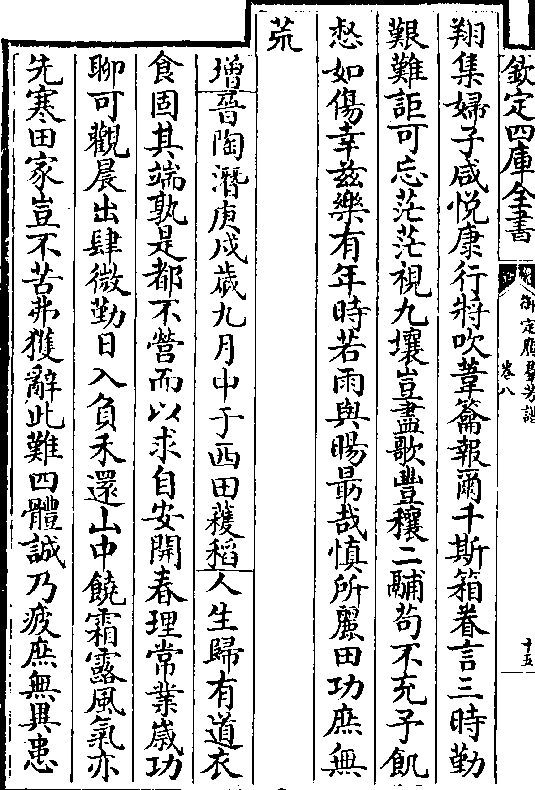 欽定四庫全書
御定佩文齋廣羣芳譜
卷八
十五
翔集婦子咸悅康行將吹葦籥報爾千斯箱眷言三時勤
艱難詎可忘茫茫視九壤豈盡歌豐穰二鬴苟不充予飢
惄如傷幸兹樂有年時若雨與暘朂哉慎所麗田功庶無
荒
增晉陶潛庚戌歲九月中于西田穫稻人生歸有道衣
食固其端孰是都不營而以求自安開春理常業歲功
聊可觀晨出肆微勤日入負禾還山中饒霜露風氣亦
先寒田家豈不苦弗獲辭此難四體誠乃疲庶無異患